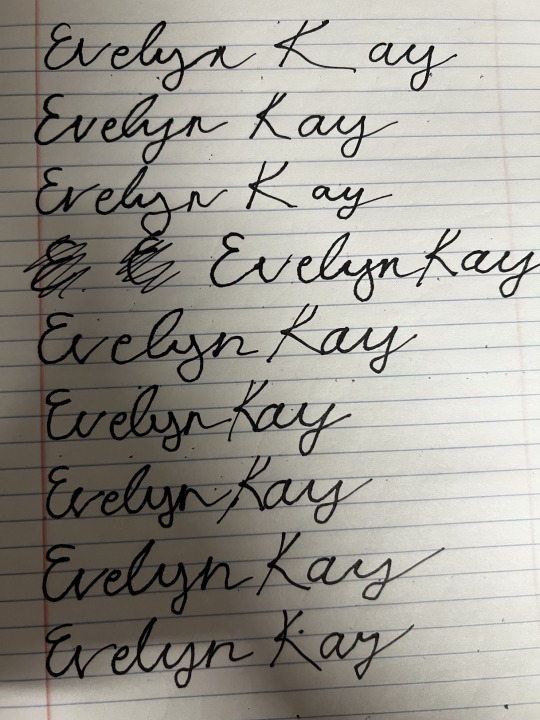 Evelyn Kay
Evelyn Kay
Evelyn Kay
Evelyn Kay
Evelyn Kay
Evelyn Kay
Evelyn Kay
Evelyn Kay
Evelyn Kay